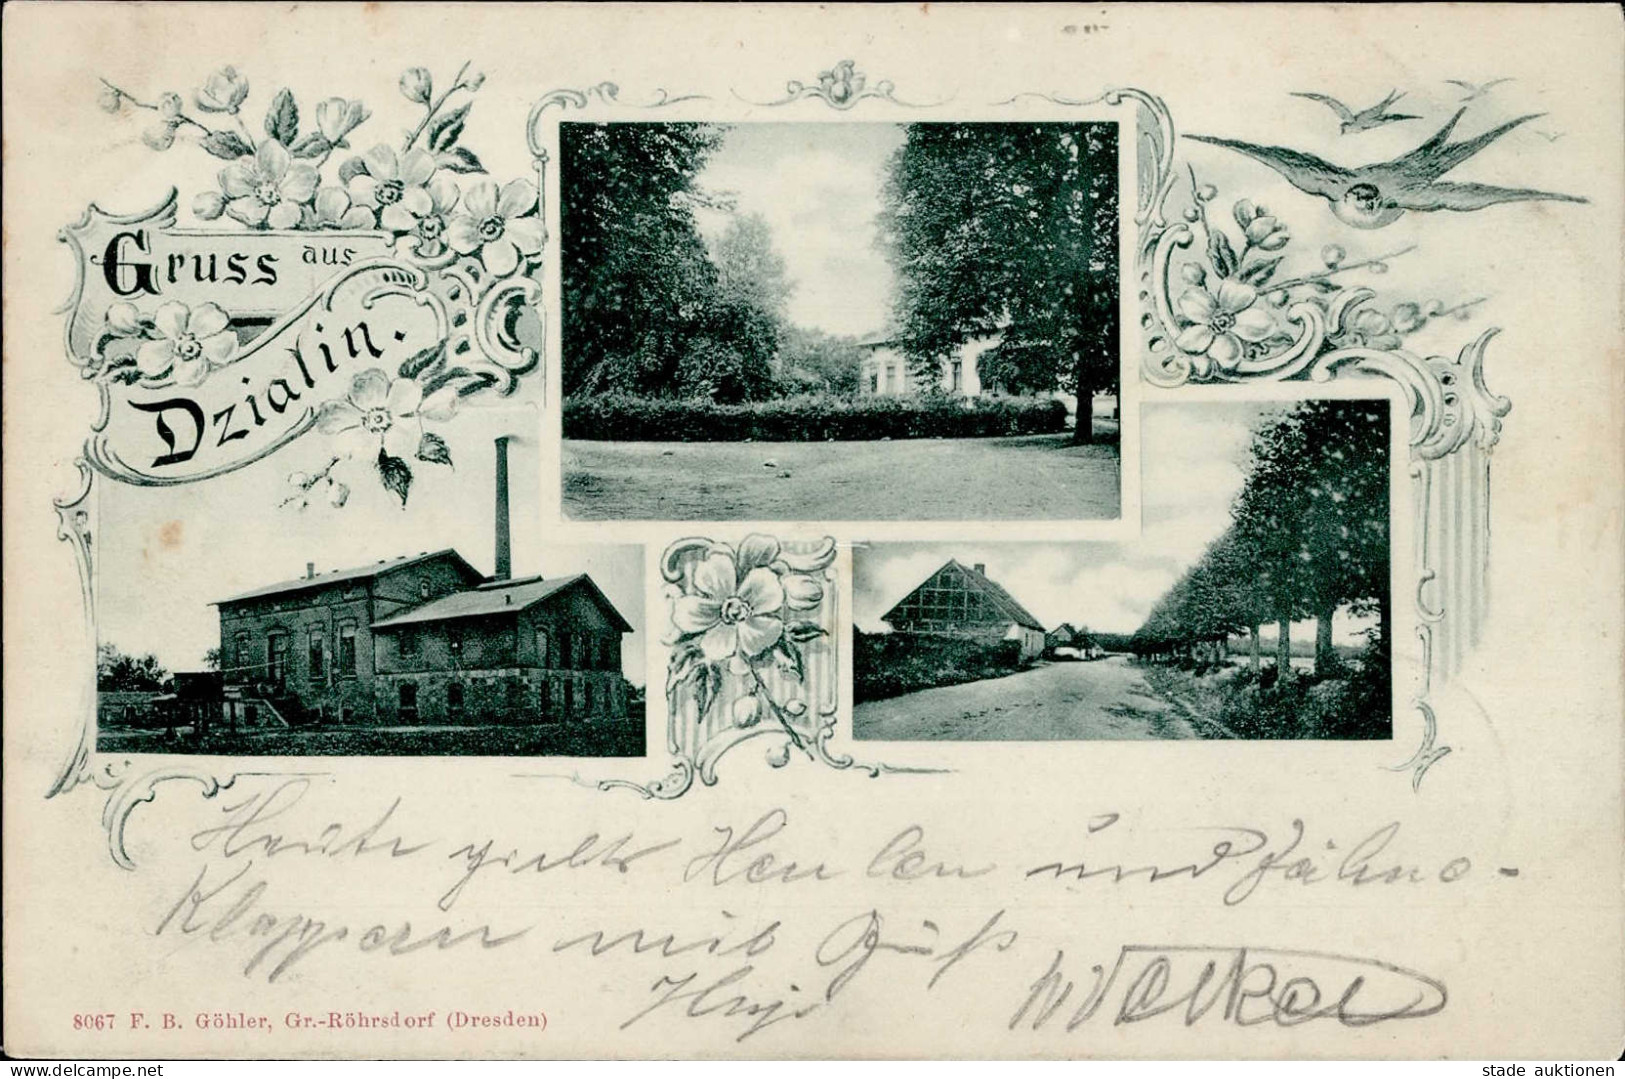 Gruss aus
Dzialin.
Heute gibts Heulen und Zähne-
Klappern mit Gruß
8067 F. B. Göhler, Gr.-Röhrsdorf (Dresden)
www.delcampe.net
stade auktionen